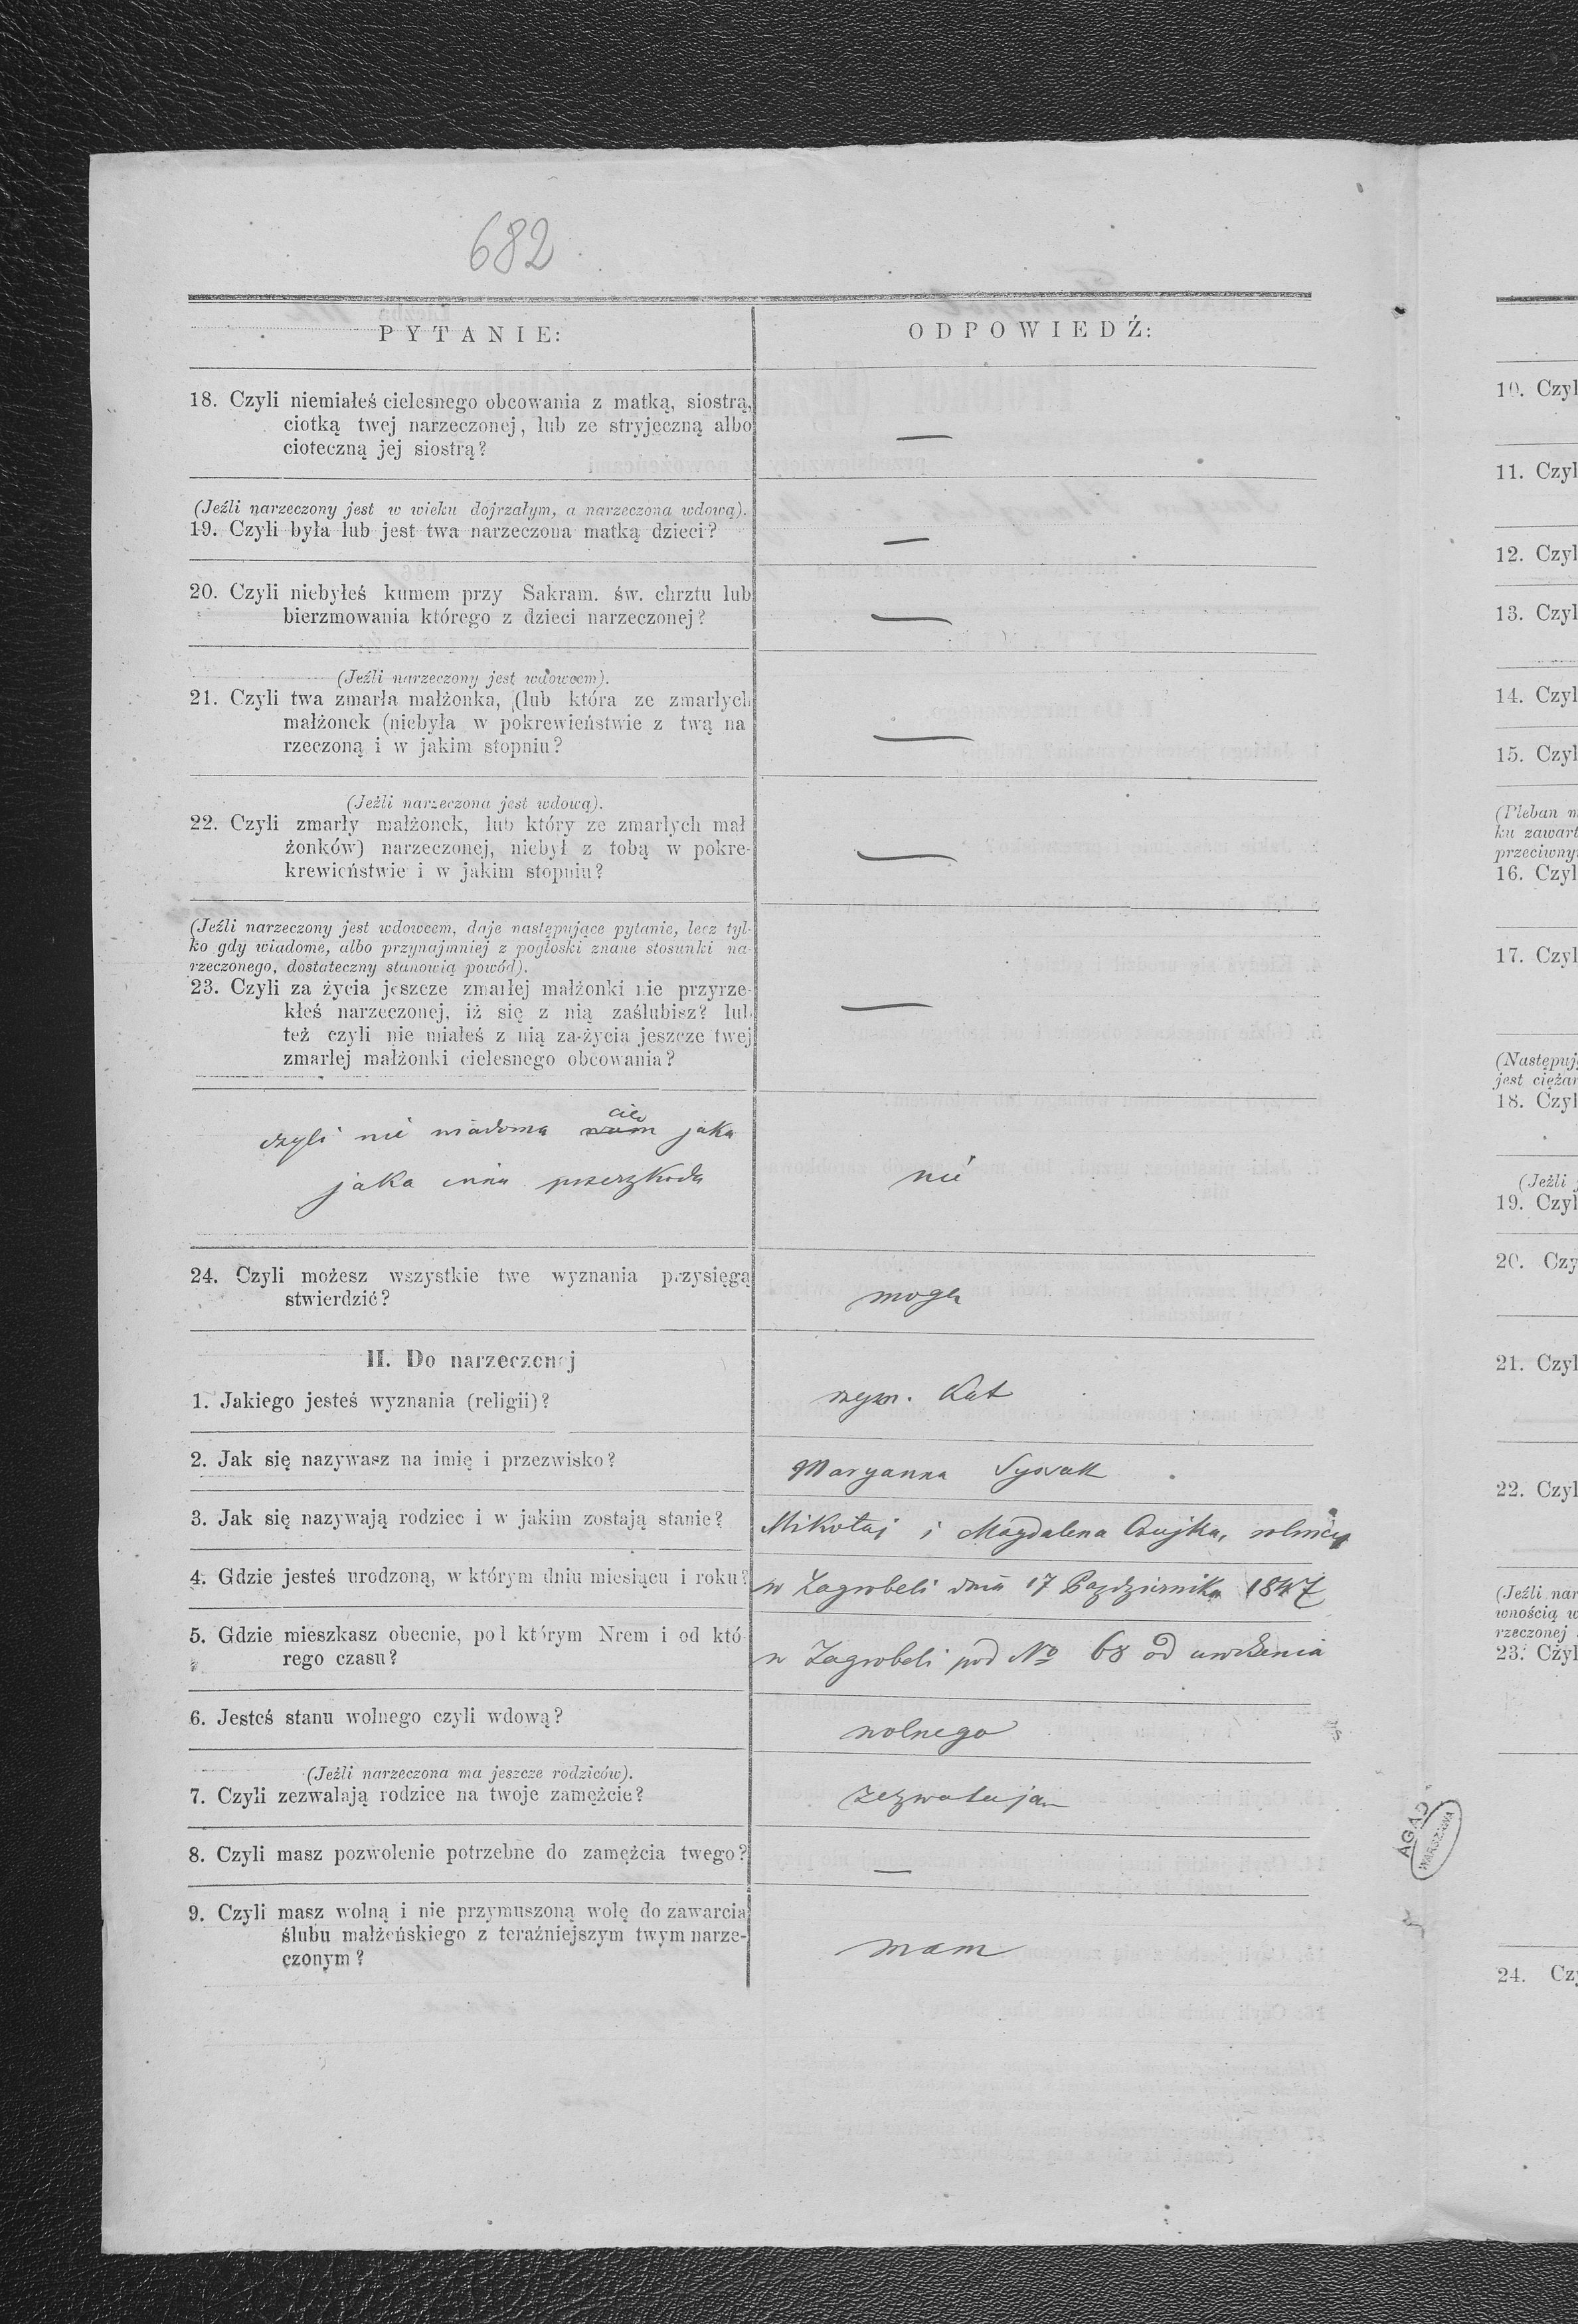 682
PYTANIE:
ODPOWIEDŹ:
18. Czyli niemiałeś cielesnego obcowania z matką, siostrą,
ciotką twej narzeczonej, lub ze stryjeczną albo
cioteczną jej siostrą?
—
(Jeźli narzeczony jest w wieku dojrzałym, a narzeczona wdową).
19. Czyli była lub jest twa narzeczona matką dzieci?
—
20. Czyli niebyłeś kumem przy Sakram. św. chrztu lub
bierzmowania którego z dzieci narzeczonej?
—
(Jeźli narzeczony jest wdowcem).
21. Czyli twa zmarła małżonka, (lub która ze zmarłych
małżonek (niebyła w pokrewieństwie z twą na
rzeczoną i w jakim stopniu?
—
(Jeźli narzeczona jest wdową).
22. Czyli zmarły małżonek, lub który ze zmarłych mał
żonków) narzeczonej, niebył z tobą w pokre-
krewieństwie i w jakim stopniu?
—
(Jeźli narzeczony jest wdowcem, daje następujące pytanie, lecz tyl-
ko gdy wiadome, albo przynajmniej z pogłoski znane stosunki na-
rzeczonego, dostateczny stanowią powód).
23. Czyli za życia jeszcze zmarłej małżonki nie przyrze-
kłeś narzeczonej, iż się z nią zaślubisz? lub
też czyli nie miałeś z nią za życia jeszcze twej
zmarłej małżonki cielesnego obcowania?
—
czyli nie wiadoma jaka
jaka inna przeszkoda
nie
24. Czyli możesz wszystkie twe wyznania przysięgą
stwierdzić?
mogę
II. Do narzeczonej
1. Jakiego jesteś wyznania (religii)?
rzym. Kat
2. Jak się nazywasz na imię i przezwisko?
Maryanna
3. Jak się nazywają rodzice i w jakim zostają stanie?
Mikołaj i Magdalena Czujka, rolnicy
4. Gdzie jesteś urodzoną, w którym dniu miesiącu i roku?
w Zagrobeli dnia 17 Pazdziernika 1847
5. Gdzie mieszkasz obecnie, pod którym Nrem i od któ-
rego czasu?
w Zagrobeli pod No 68 od urodzenia
6. Jesteś stanu wolnego czyli wdową?
wolnego
(Jeźli narzeczona ma jeszcze rodziców).
7. Czyli zezwalają rodzice na twoje zamężcie?
zezwalają
8. Czyli masz pozwolenie potrzebne do zamężcia twego?
—
9. Czyli masz wolną i nie przymuszoną wolę do zawarcia
ślubu małżeńskiego z teraźniejszym twym narze-
czonym?
mam
10. Czyl
11. Czyl
12. Czyl
13. Czyl
14. Czyl
15. Czyl
(Pleban n
ku zawart
przeciwny
16. Czyl
17. Czyl
(Następują
jest ciężar
18. Czyl
(Jeźli
19. Czyl
20. Czy
21. Czyl
22. Czyl
(Jeźli nar
wnością w
rzeczonej
23. Czyl
24. Czy
AGAD
WARSZAWA